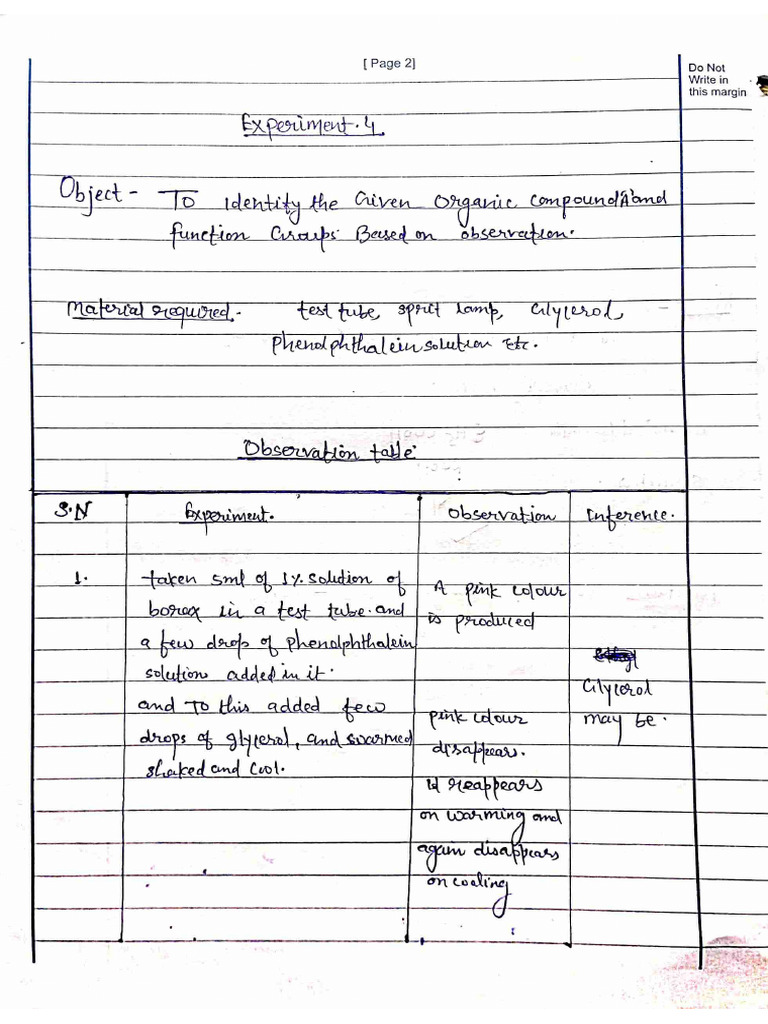 [ Page 2]
Do Not
Write in
this margin
Experiment.4
Object - To identify the Given Organic compound 'A' and
function Groups Based on observation.
Material required.- test tube, sprit lamp, Glycerol,
Phenolphthalein solution Etc.
Observation table
S.N Experiment. Observation Inference.
1. taken 5ml of 1% solution of
borax in a test tube. and
a few drop of Phenolphthalein
solution added in it.
and To this added few
drops of glycerol, and swarmed
shaked and Cool.
A pink colour
is produced
pink colour
disappears.
it reappears
on warming and
again disappears
on cooling
Glycerol
may be.